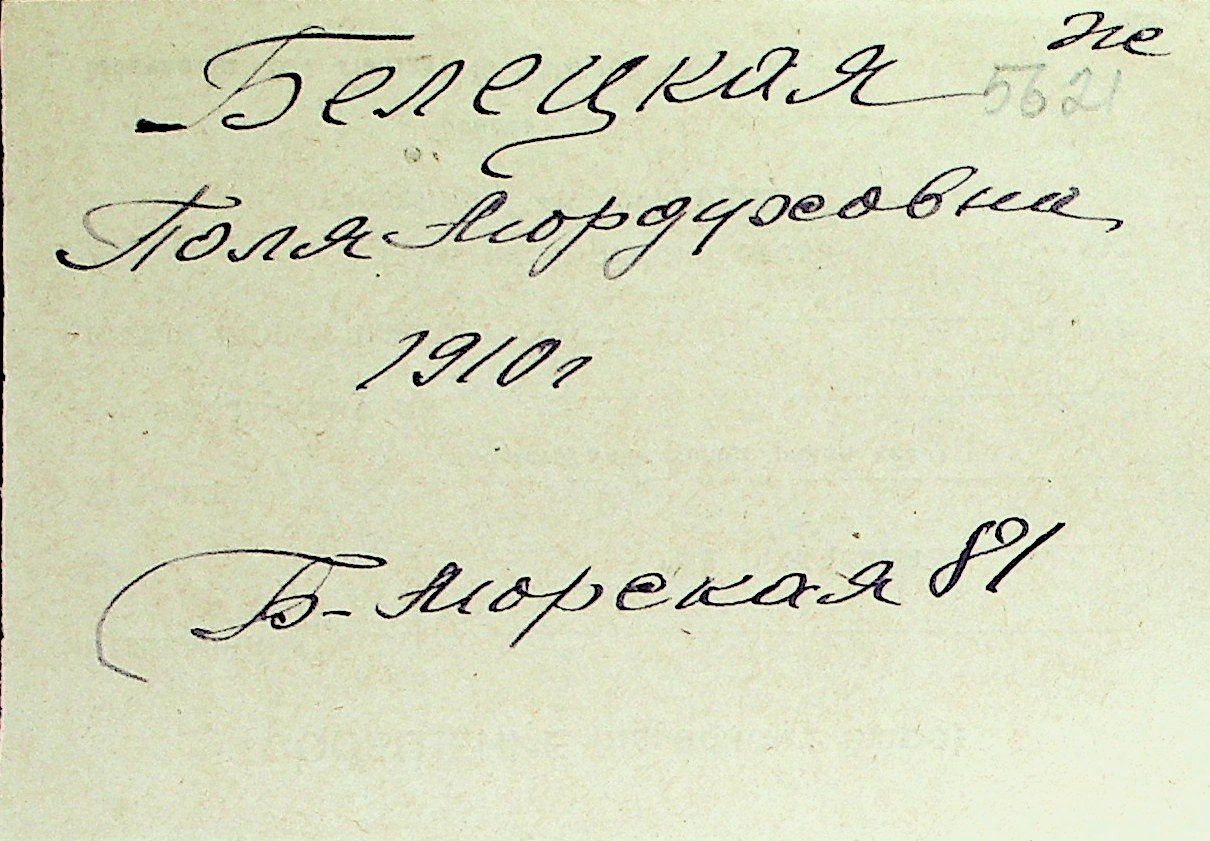 же
Белецкая 5621
Поля Мордуховна
1910г
Б-Морская 81